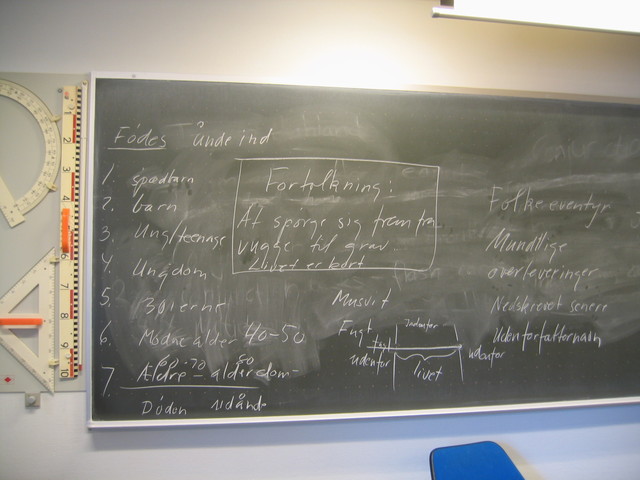 Födes ånde ind
1. spædbarn
2. barn
3. Ung/teenage
4. Ungdom
5. 30'erne
6. Modne alder 40-50
60-70 80
7. Ældre - alderdom-
Döden udånde
Fortolkning:
At spørge sig frem fra
vugge til grav.
Livet er kort
Musvit
Fugl
Indenfor
udenfor
livet
udenfor
Folkeeventyr
Mundlige
overleveringer
Nedskrevet senere
Uden forfatternavn
1
2
3
4
6
7
8
9
10